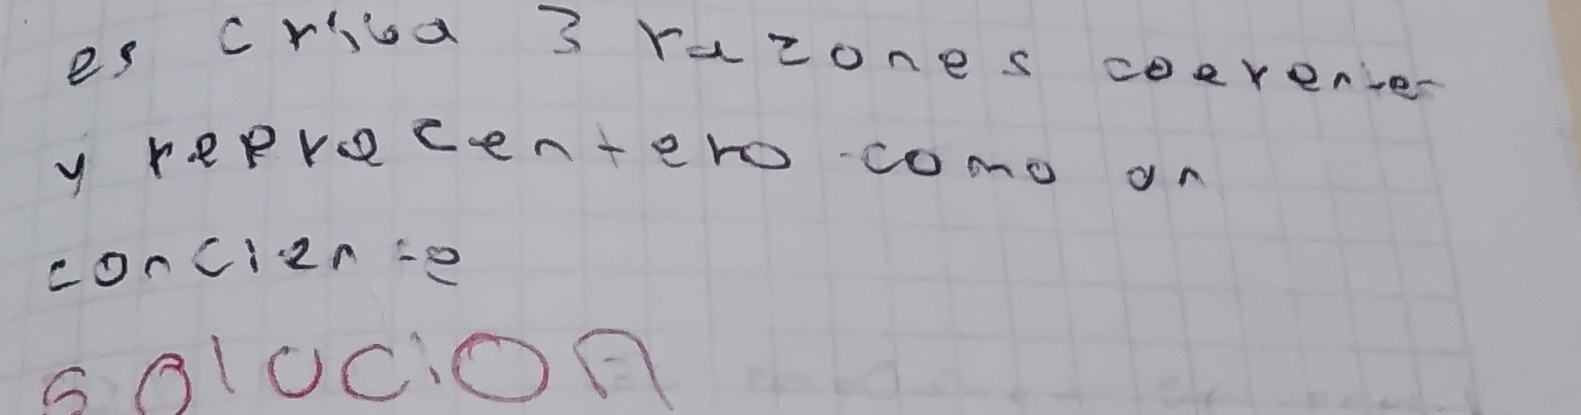 es criba 3 razones coerentes
y reprecentero como un
conciente
solucion